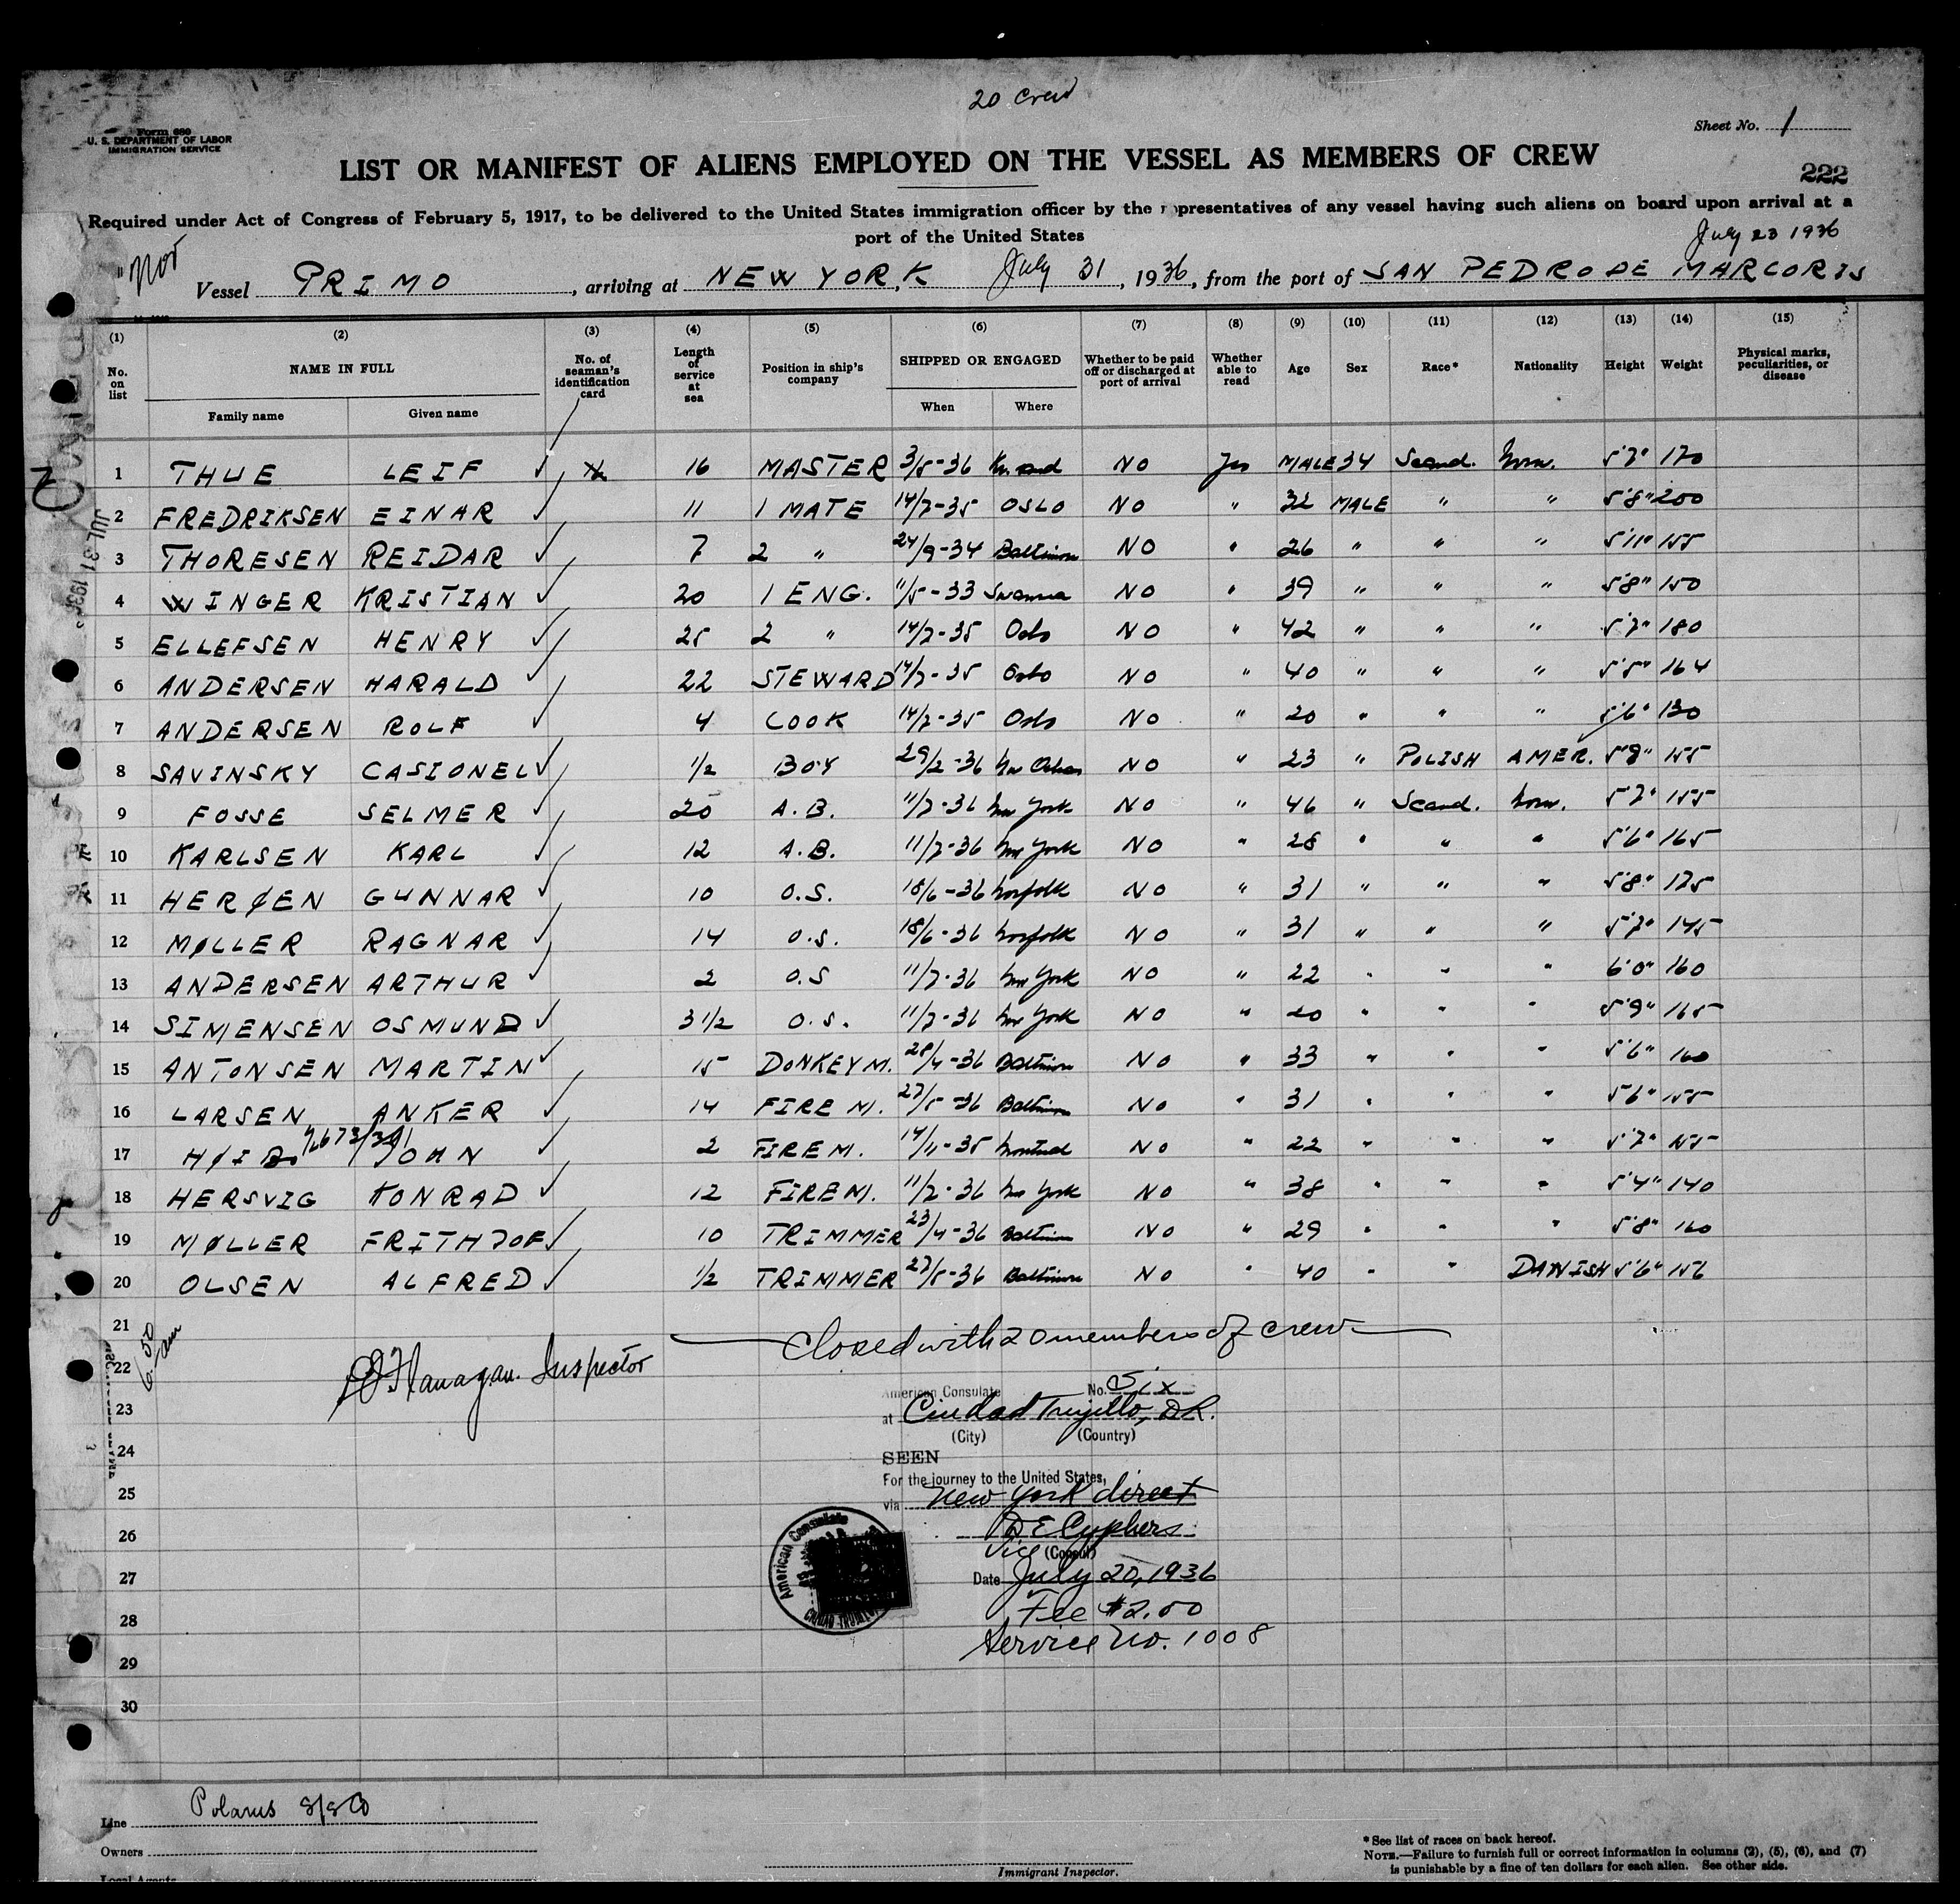 20 Crew
Form 680
U. S. DEPARTMENT OF LABOR
IMMIGRATION SERVICE
Sheet No. 1
LIST OR MANIFEST OF ALIENS EMPLOYED ON THE VESSEL AS MEMBERS OF CREW
222
Required under Act of Congress of February 5, 1917, to be delivered to the United States immigration officer by the representatives of any vessel having such aliens on board upon arrival at a
port of the United States
July 23 1936
Nor
Vessel PRIMO, arriving at NEW YORK, July 31, 1936, from the port of SAN PEDRO DE MARCORIS
(1) (2) (3) (4) (5) (6) (7) (8) (9) (10) (11) (12) (13) (14) (15)
No. on list NAME IN FULL No. of seaman's identification card Length of service at sea Position in ship's company SHIPPED OR ENGAGED Whether to be paid off or discharged at port of arrival Whether able to read Age Sex Race* Nationality Height Weight Physical marks, peculiarities, or disease
Family name Given name When Where
1 THUE LEIF 16 MASTER 3/5-36 NO Yes MALE 34 Scand. Norw. 5'7" 170
2 FREDRIKSEN EINAR 11 1 MATE 14/7-35 OSLO NO " 32 MALE " " 5'8" 200
3 THORESEN REIDAR 7 2 " 24/9-34 Baltimore NO " 26 " " " 5'11" 155
4 WINGER KRISTIAN 20 1 ENG. 11/5-33 NO " 39 " " " 5'8" 150
5 ELLEFSEN HENRY 25 2 " 14/7-35 Oslo NO " 42 " " " 5'7" 180
6 ANDERSEN HARALD 22 STEWARD 14/7-35 Oslo NO " 40 " " " 5'5" 164
7 ANDERSEN ROLF 4 COOK 14/7-35 Oslo NO " 20 " " " 5'6" 130
8 SAVINSKY CASIONEL 1/2 BOY 29/2-36 New Orleans NO " 23 " POLISH AMER. 5'8" 155
9 FOSSE SELMER 20 A.B. 11/7-36 New York NO " 46 " Scand. Norw. 5'7" 155
10 KARLSEN KARL 12 A.B. 11/7-36 New York NO " 28 " " " 5'6" 165
11 HERØEN GUNNAR 10 O.S. 18/6-36 Norfolk NO " 31 " " " 5'8" 175
12 MØLLER RAGNAR 14 O.S. 18/6-36 Norfolk NO " 31 " " " 5'7" 145
13 ANDERSEN ARTHUR 2 O.S 11/7-36 New York NO " 22 " " " 6'0" 160
14 SIMENSEN OSMUND 3 1/2 O.S. 11/7-36 New York NO " 20 " " " 5'9" 165
15 ANTONSEN MARTIN 15 DONKEYM. 28/4-36 Baltimore NO " 33 " " " 5'6" 160
16 LARSEN ANKER 14 FIREM. 27/5-36 Baltimore NO " 31 " " " 5'6" 155
17 JOHN 2 FIREM. 14/11-35 Montreal NO " 22 " " " 5'7" 155
18 HERSVIG KONRAD 12 FIREM. 11/7-36 New York NO " 38 " " " 5'4" 140
19 MØLLER FRITHJOF 10 TRIMMER 23/4-36 Baltimore NO " 29 " " " 5'8" 160
20 OLSEN ALFRED 1/2 TRIMMER 27/5-36 Baltimore NO " 40 " " DANISH 5'6" 156
21 Closed with 20 members of crew
22 Flanagan. Inspector
6.50 am
JUL 31 1936
American Consulate No. Six
23 at Ciudad Trujillo, D.R.
(City) (Country)
24 SEEN
For the journey to the United States,
25 via New York direct
26 Cyphers
Vice (Consul)
27 Date July 20, 1936
28 Fee $2.00
Service No. 1008
29
30
American Consulate
Line Polarus S/S Co
Owners
Local Agents
Immigrant Inspector.
*See list of races on back hereof.
NOTE.—Failure to furnish full or correct information in columns (2), (5), (6), and (7)
is punishable by a fine of ten dollars for each alien. See other side.